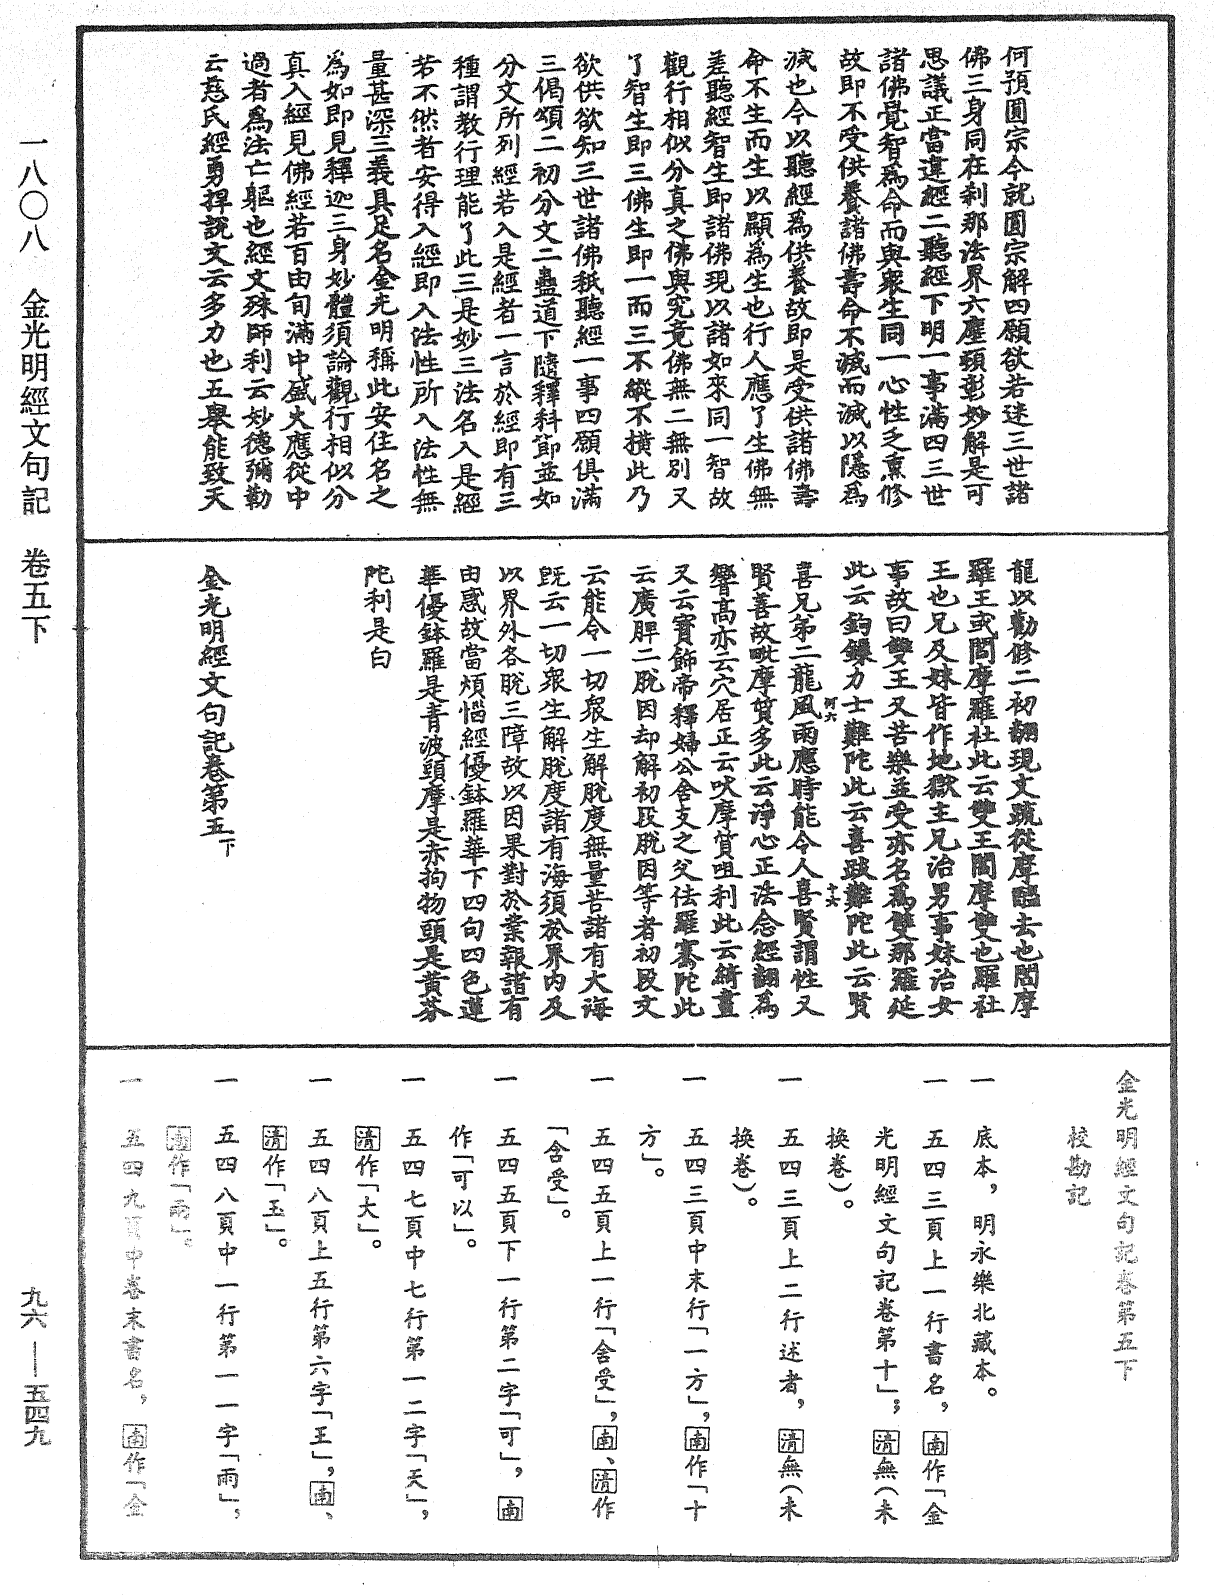 何預圓宗今就圓宗解四願欲若迷三世諸
佛三身同在剎那法界六塵頓彰妙解是可
思議正當違經二聽經下明一事滿四三世
諸佛覺智為命而與眾生同一心性之熏修
故即不受供養諸佛壽命不滅而滅以隱為
滅也今以聽經為供養故即是受供諸佛壽
命不生而生以顯為生也行人應了生佛無
差聽經智生即諸佛現以諸如來同一智故
觀行相似分真之佛與究竟佛無二無別又
了智生即三佛生即一而三不縱不橫此乃
欲供欲知三世諸佛秖聽經一事四願俱滿
三偈頌二初分文二盡道下隨釋科節並如
分文所列經若入是經者一言於經即有三
種謂教行理能了此三是妙三法名入是經
若不然者安得入經即入法性所入法性無
量甚深三義具足名金光明稱此安住名之
為如即見釋迦三身妙體須論觀行相似分
真入經見佛經若百由旬滿中盛火應從中
過者為法亡軀也經文殊師利云妙德彌勒
云慈氏經勇捍說文云多力也五舉能致天
龍以勸修二初翻現文疏從摩醯去也閻摩
羅王或閻摩羅社此云雙王閻摩雙也羅社
王也兄及妹皆作地獄主兄治男事妹治女
事故曰雙王又苦樂並受亦名為雙那羅延
此云鉤鏁力士難陀此云喜跋難陀此云賢
河六 十六
喜兄弟二龍風雨應時能令人喜賢謂性又
賢善故毗摩質多此云淨心正法念經翻為
響高亦云穴居正云吠摩質咀利此云綺畫
又云寶飾帝釋婦公舍支之父佉羅騫陀此
云廣胛二脫因却解初段脫因等者初段文
云能令一切眾生解脫度無量苦諸有大海
既云一切眾生解脫度諸有海須於界內及
以界外各脫三障故以因果對於業報諸有
由惑故當煩惱經優鉢羅華下四句四色蓮
華優鉢羅是青波頭摩是赤拘物頭是黃芬
陀利是白
金光明經文句記卷第五下
金光明經文句記卷第五下
校勘記
一 底本，明永樂北藏本。
一 五四三頁上一行書名，南作「金
光明經文句記卷第十」；清無（未
換卷）。
一 五四三頁上二行述者，清無（未
換卷）。
一 五四三頁中末行「一方」，南作「十
方」。
一 五四五頁上一行「舍受」，南、清作
「含受」。
一 五四五頁下一行第二字「可」，南
作「可以」。
一 五四七頁中七行第一二字「天」，
清作「大」。
一 五四八頁上五行第六字「王」，南、
清作「玉」。
一 五四八頁中一行第一一字「雨」，
南作「兩」。
一 五四九頁中卷末書名，南作「金
一八〇八 金光明經文句記 卷五下
九六—五四九